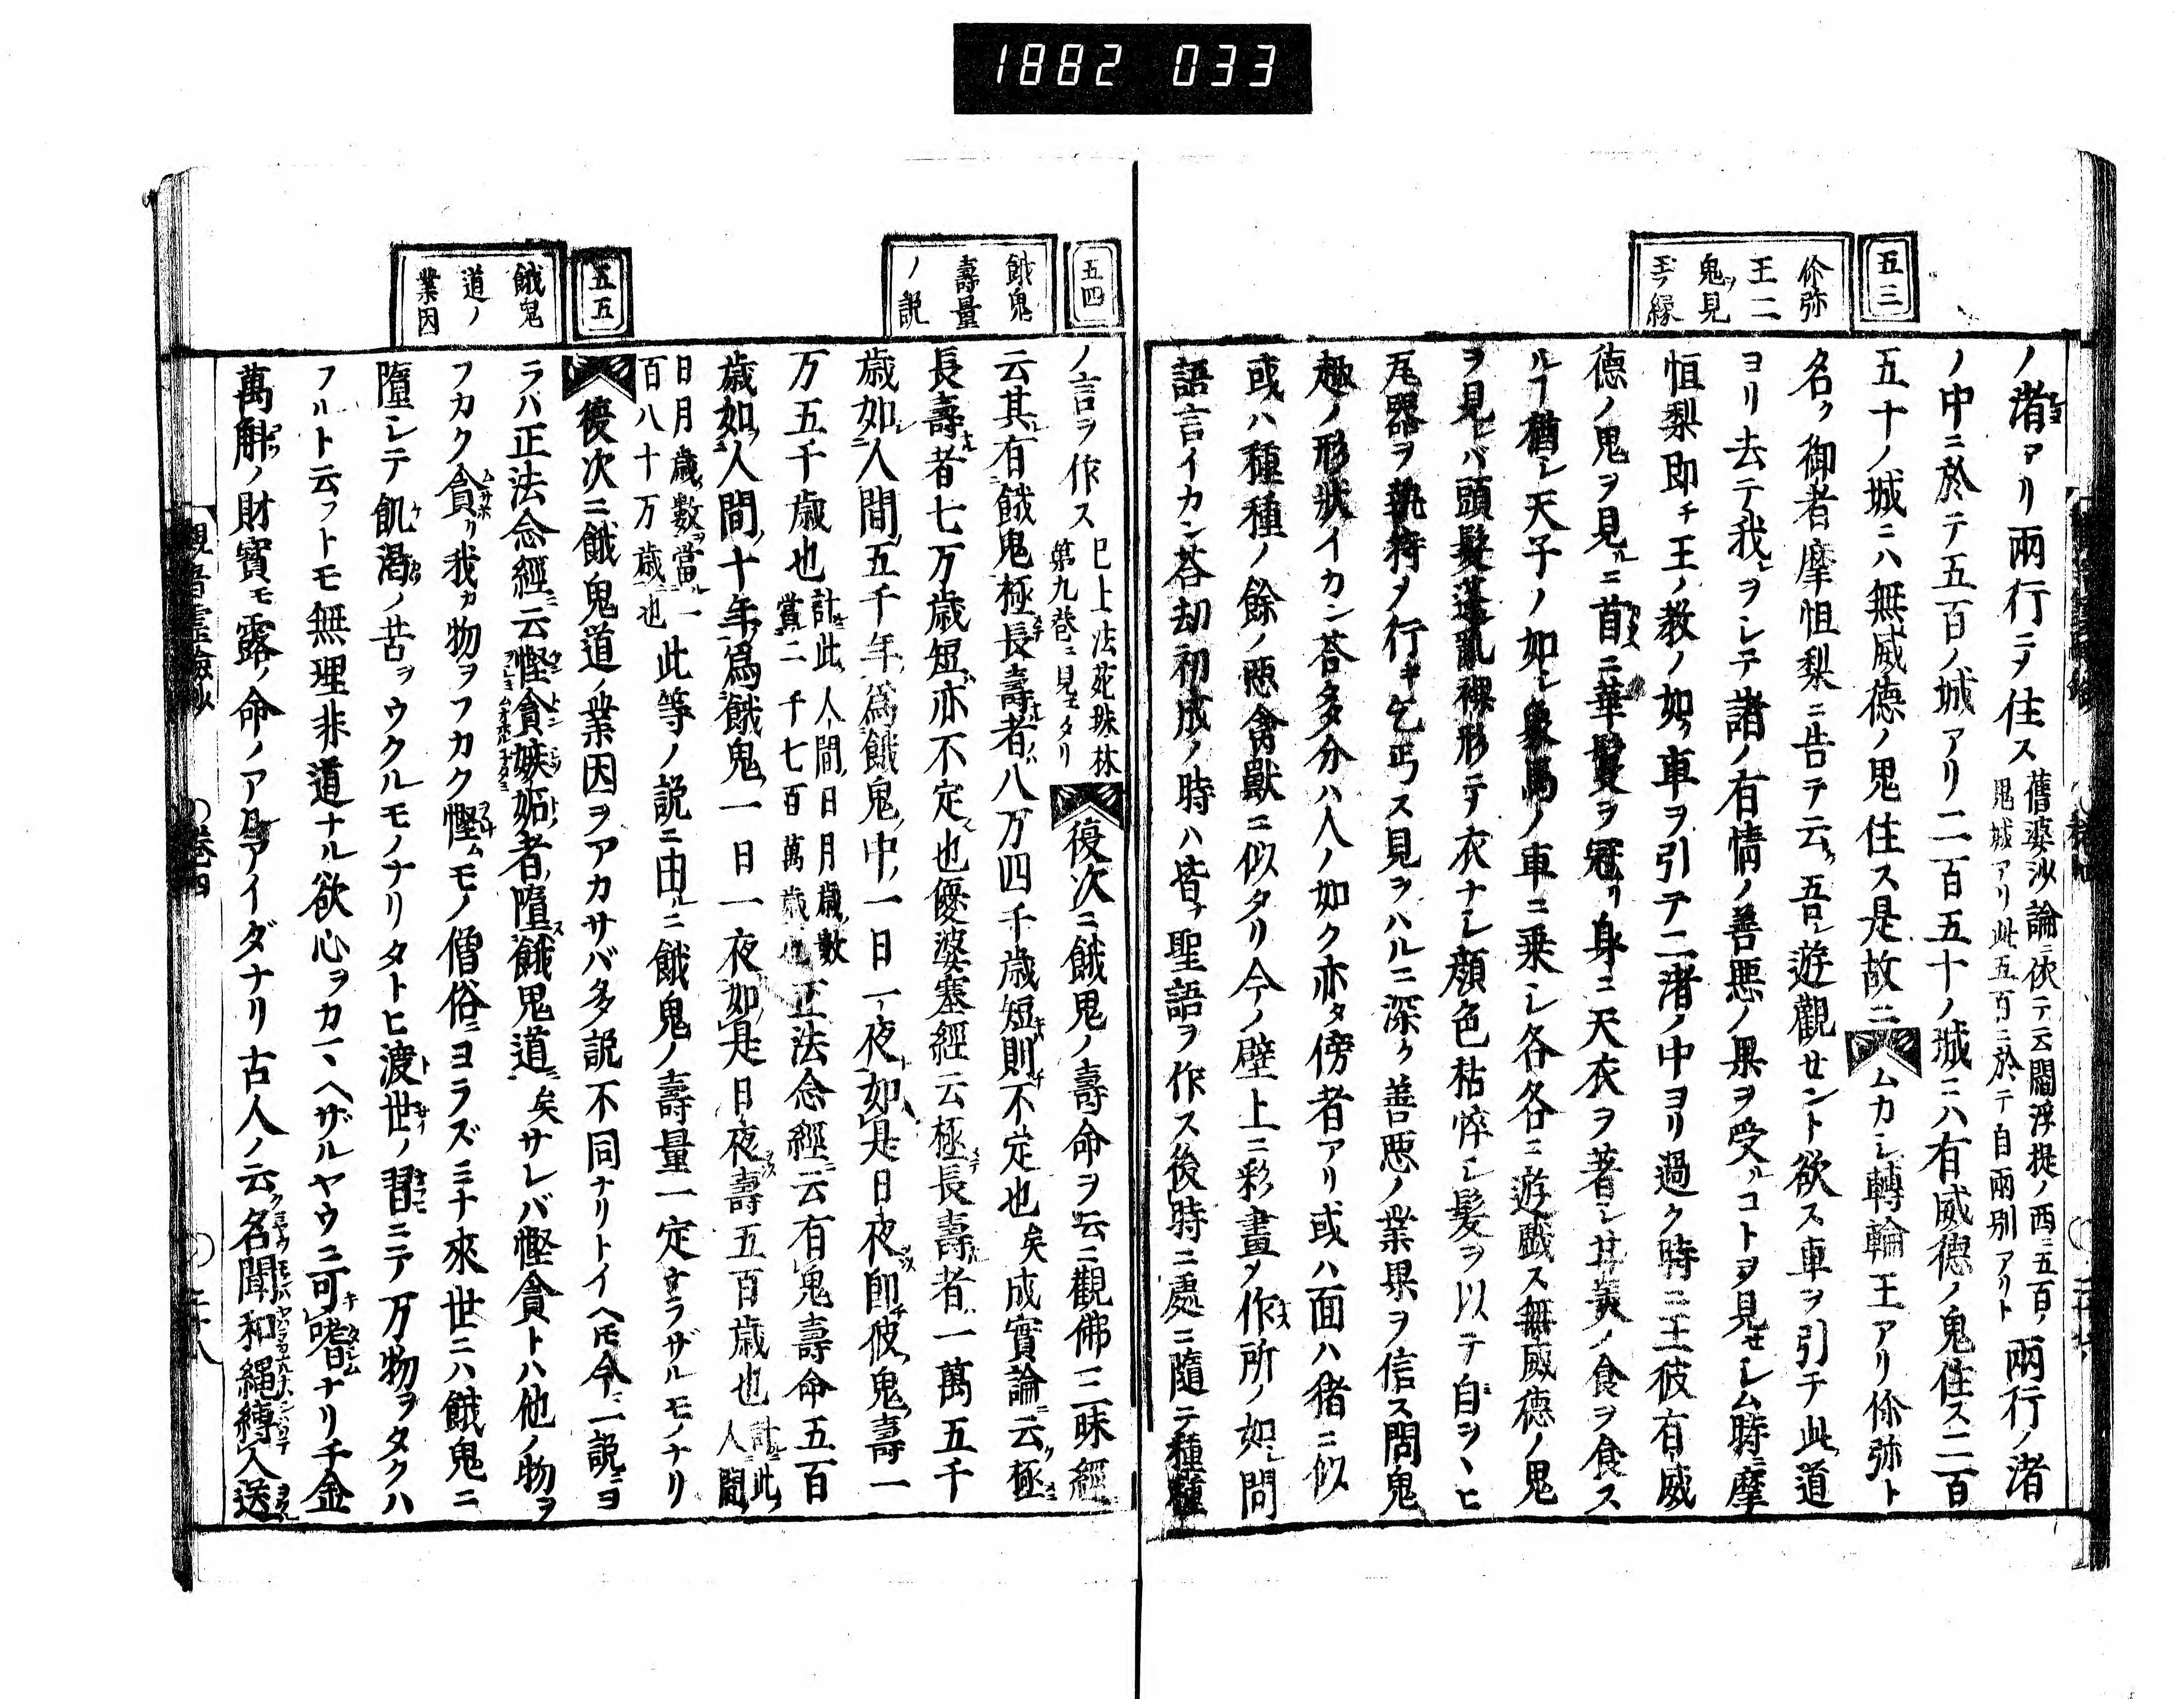 1882 033
五三
伱弥
王二
鬼ヲ見
玉フ縁
ノ渚アリ兩行ニヲ住ス舊婆沙論ニ依テ云閻浮提ノ西ニ五百ノ鬼城アリ此五百ニ於テ自兩別アリト兩行ノ渚
ノ中ニ於テ五百ノ城アリ二百五十ノ城ニハ有威德ノ鬼住ス二百
五十ノ城ニハ無威德ノ鬼住ス是故ニムカシ轉輪王アリ伱弥ト
名ク御者摩怛梨ニ告テ云ク吾レ遊觀セント欲ス車ヲ引テ此道
ヨリ去テ我ヲシテ諸ノ有情ノ善悪ノ果ヲ受ルコトヲ見セシム時ニ摩
怛梨即チ王ノ教ノ如ク車ヲ引テ二渚ノ中ヨリ過ク時ニ王彼有威
德ノ鬼ヲ見ルニ首ニ華鬘ヲ冠リ身ニ天衣ヲ著シ甘美ノ食ヲ食ス
ルヿ猶シ天子ノ如シ象馬ノ車ニ乗シ各各ニ遊戯ス無威德ノ鬼
ヲ見レバ頭髮蓬亂裸形テ衣ナシ顔色枯悴シ髪ヲ以テ自ヲヽヒ
瓦器ヲ執持メ行キ乞丐ス見ヲハルニ深ク善悪ノ業果ヲ信ス問鬼
趣ノ形狀イカン荅多分ハ人ノ如ク亦タ傍者アリ或ハ面ハ猪ニ似
或ハ種種ノ餘ノ悪禽獸ニ似タリ今ノ壁上ニ彩畫ヲ作ス所ノ如シ問
語言イカン荅劫初成ノ時ハ皆ナ聖語ヲ作ス後時ニ處ニ隨テ種種
五四
餓鬼
壽量
ノ說
ノ言ヲ作ス巳上法苑珠林第九巻ニ見エタリ復次ニ餓鬼ノ壽命ヲ云ニ觀佛三昧經
云其有餓鬼極長壽者八万四千歳短則不定也矣成實論ニ云ク極
長壽者七万歳短亦不定也優婆塞經云極長壽者一萬五千
歳如人間五千年爲餓鬼中一日一夜如是日夜即彼鬼壽一
万五千歳也計此人間日月歳數當二千七百萬歳也正法念經ニ云有鬼壽命五百
歳如人間十年爲餓鬼一日一夜如是日夜壽五百歳也計此人間
日月歳數當一百八十万歳也此等ノ說ニ由ルニ餓鬼ノ壽量一定ナラザルモノナリ
五五
餓鬼
道ノ
業因
復次ニ餓鬼道ノ業因ヲアカサバ多說不同ナリトイヘ𪜈今ニ一說ニヨ
ラハ正法念經ニ云慳貪嫉妬者墮餓鬼道矣サレバ慳貪トハ他ノ物ヲ
フカク貪リ我カ物ヲフカク慳ムモノ僧俗ニヨラズミナ來世ニハ餓鬼ニ
墮シテ飢渇ノ苦ヲウクルモノナリタトヒ渡世ノ習ニテ万物ヲタクハ
フルト云フトモ無理非道ナル欲心ヲカマヘザルヤウニ可嗜ナリ千金
萬斛ノ財寳モ露ノ命ノアルアイダナリ古人ノ云ク名聞和繩縛人送
觀音靈驗鈔
巻四
二十八